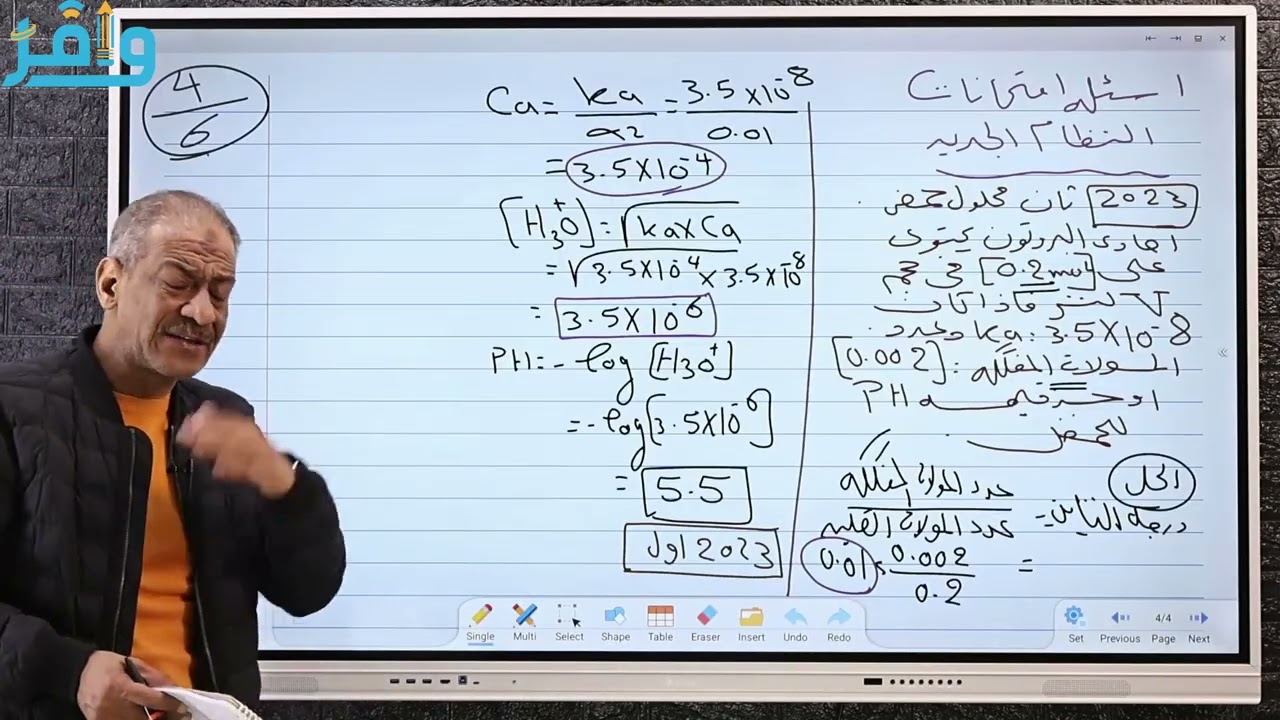 وافر
4/6
اسئله امتحانات
النظام الجديد
2023 ثان محلول حمض
احادى البروتون يحتوى
على [0.2 mol] فى حجم
V لتر فاذا كانت
ka: 3.5X10-8 وعدد
المولات المفككه: [0.002]
اوجد قيمه PH
للحمض
الحل
درجه التاين = عدد المولات المفككه / عدد المولات الكليه
= 0.002 / 0.2 = 0.01
Ca = ka / α2 = 3.5X10-8 / 0.01
= 3.5X10-4
[H3O+] = √ka x Ca
= √3.5X10-4 x 3.5X10-8
= 3.5X10-6
PH = - log [H3O+]
= - log [3.5X10-6]
= 5.5
2023 اول
Single Multi Select Shape Table Eraser Insert Undo Redo
Set Previous 4/4 Page Next